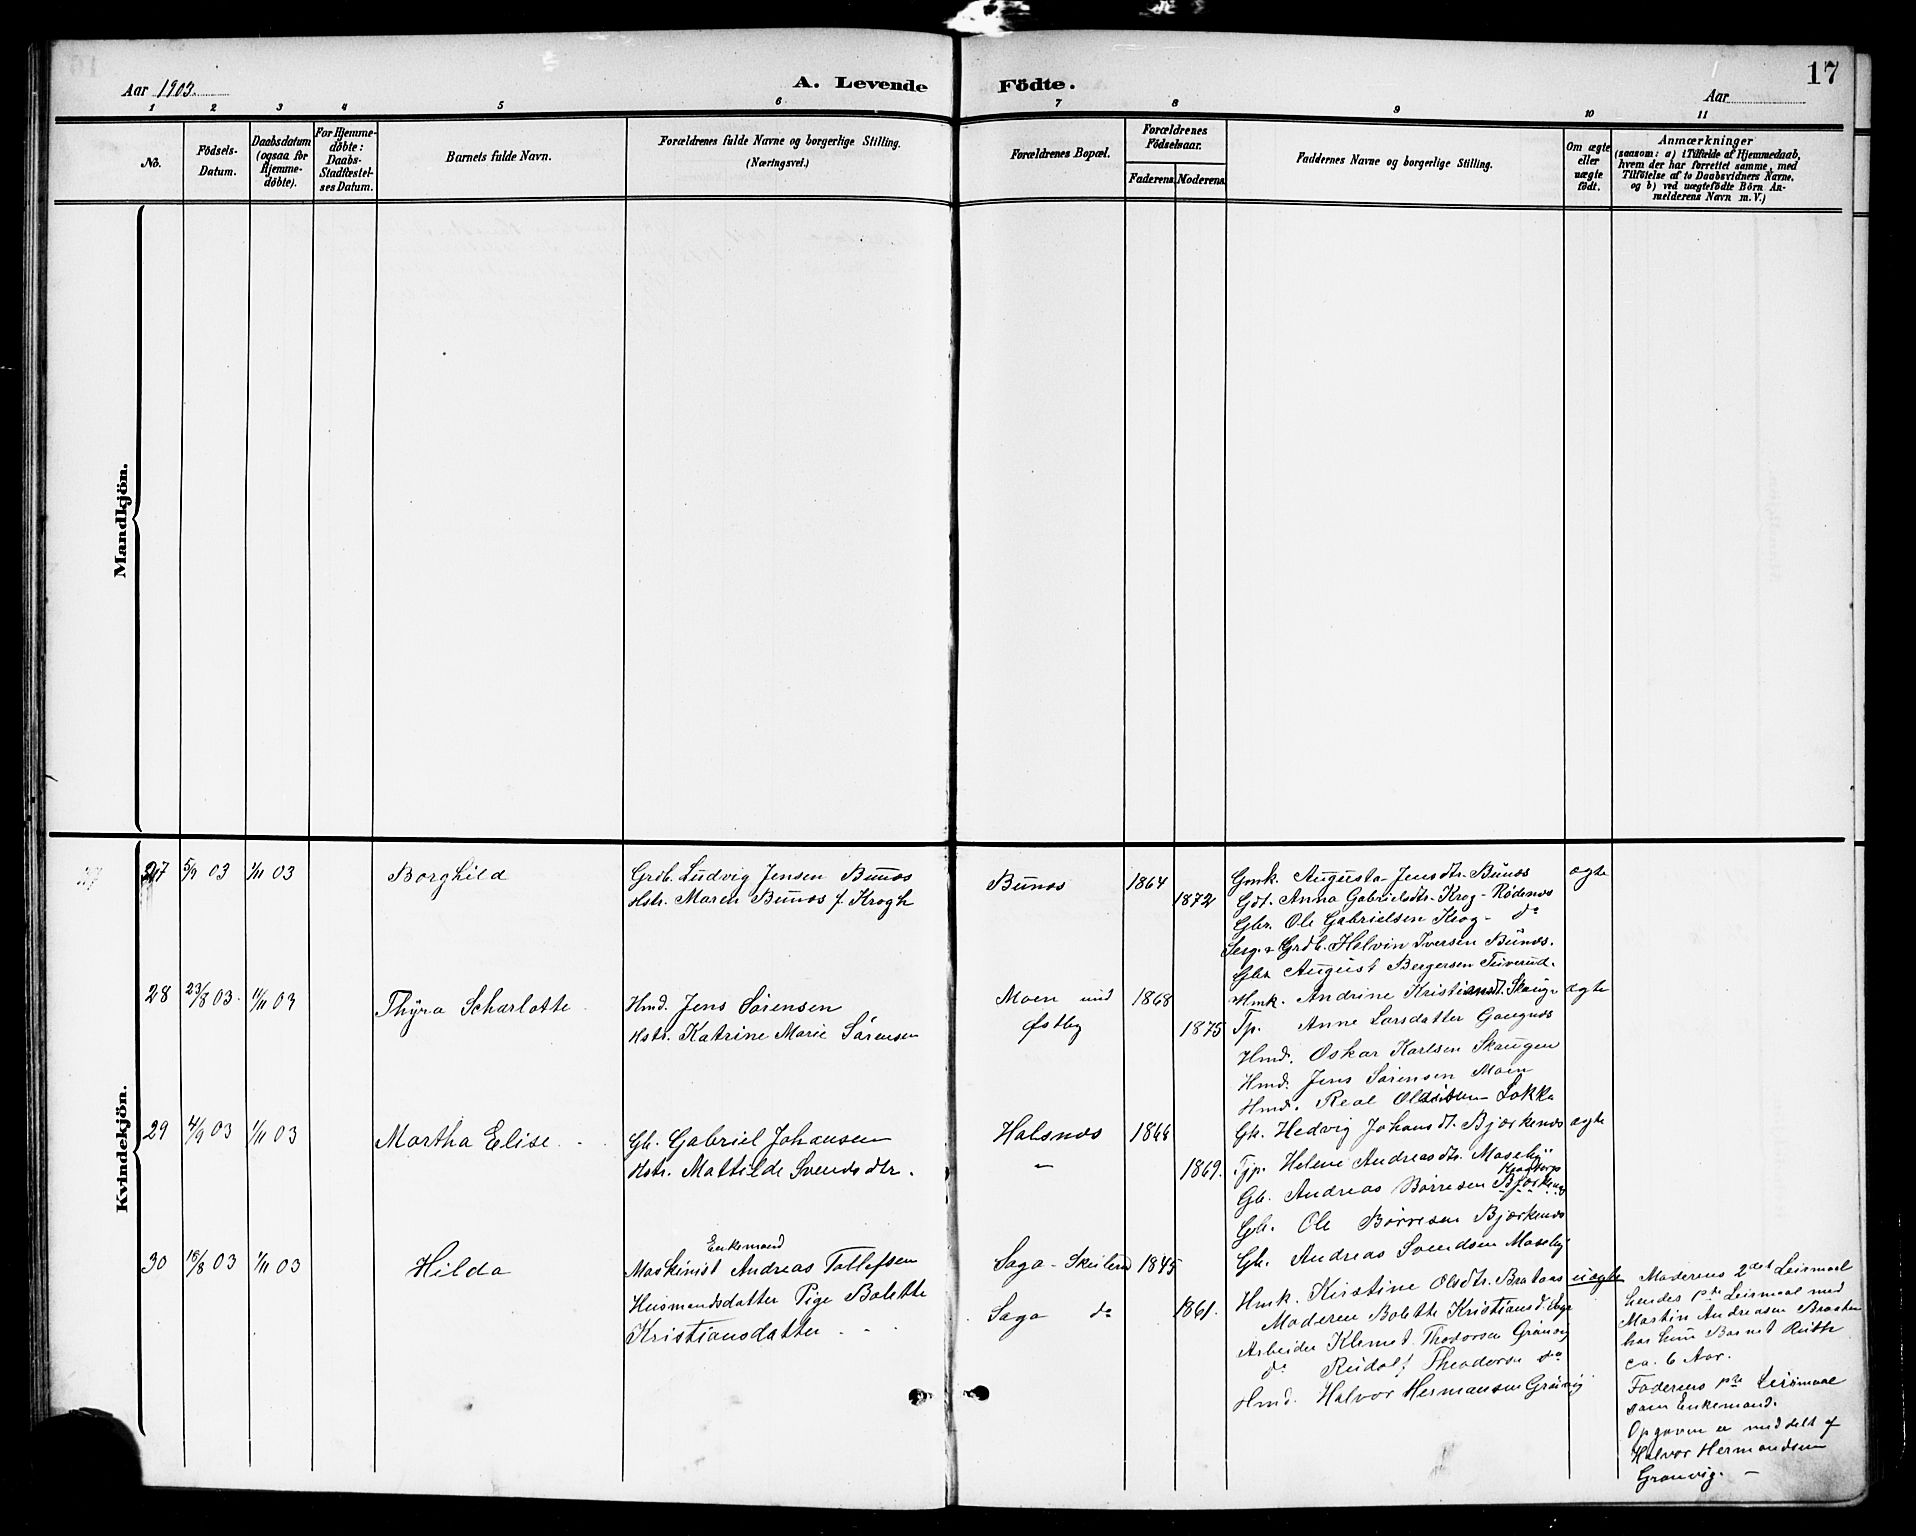 17
Aar 1903.
A. Levende Födte.
Aar
1 2 3 4 5 6 7 8 9 10 11
No.
Födsels-Datum.
Daabsdatum (ogsaa for Hjemme-döbte).
For Hjemme-döbte: Daabs-Stadfæstel-ses Datum.
Barnets fulde Navn.
Forældrenes fulde Navne og borgerlige Stilling. (Næringsvei.)
Forældrenes Bopæl.
Forældrenes Födselsaar.
Faderens. Moderens.
Faddernes Navne og borgerlige Stilling.
Om ægte eller uægte födt.
Anmærkninger
(saasom: a) i Tilfælde af Hjemmedaab,
hvem der har forrettet samme, med
Tilföielse af to Daabsvidners Navne,
og b) ved uægtefödte Börn An-
melderens Navn m. V.)
Mandkjön.
Kvindekjön.
27 5/9 03 1/11 03 Borghild
Grdb. Ludvig Jensen Bunæs
Hstr. Maren Bunæs f. Krogh
Bunæs 1864 1872
Gmk. Augusta Jensdtr. Bunæs
Gdt. Anna Gabrielsdtr. Krog - Rødenæs
Gbr. Ole Gabrielsen Krog - do
Serg. & Grdb. Helvin Iversen Bunæs.
Gbr. August Bergersen Tuverud.
ægte
28 23/8 03. 1/11 03 Thyra Scharlotte
Hmd. Jens Sørensen
Hstr. Katrine Marie Sørensen
Moen und Østby 1868 1875
Hmk. Andrine Kristiansdt. Skaug
Tp. Anne Larsdatter Gaugnæs
Hmd. Oskar Karlsen Skaugen
Hmd. Jens Sørensen Moen
Hmd. Real Olausen Løkka
ægte
29 4/9 03 1/11 03 Martha Elise
Gb. Gabriel Johansen
Hstr. Mathilde Svendsdtr.
Halsnæs 1866 1869.
Gk. Hedvig Johansdt. Bjørkenæs
Tjp. Helene Andreasdtr. Moseby
Gb. Andreas Børresen Bjørkenæs
Gb. Ole Børresen Bjørkenæs
Gb. Andreas Svendsen Moseby
ægte
30 18/8 03 1/11 03 Hilda
Enkemand
Maskinist Andreas Tollefsen
Husmandsdatter Pige Bolette
Kristiansdatter
Saga - 1845
Saga do 1861.
Hmk. Kirstine Olsdtr. Braatens
Moderen Bolette Kristiansd. Saga
Arbeider Klemet Thodorsen Grønvig
do Rudolf Theodorsen do
Hmd. Halvor Hermansen Grønvig
uægte
Moderens 2det Leiermaal
hendes 1ste Leiermaal med
Martin Andreasen Braaten
har hun Barnet Ruth
ca. 6 Aar.
Faderens 1ste Leiermaal
som Enkemand.
Opgaven er meddelt af
Halvor Hermandsen
Grønvig. -